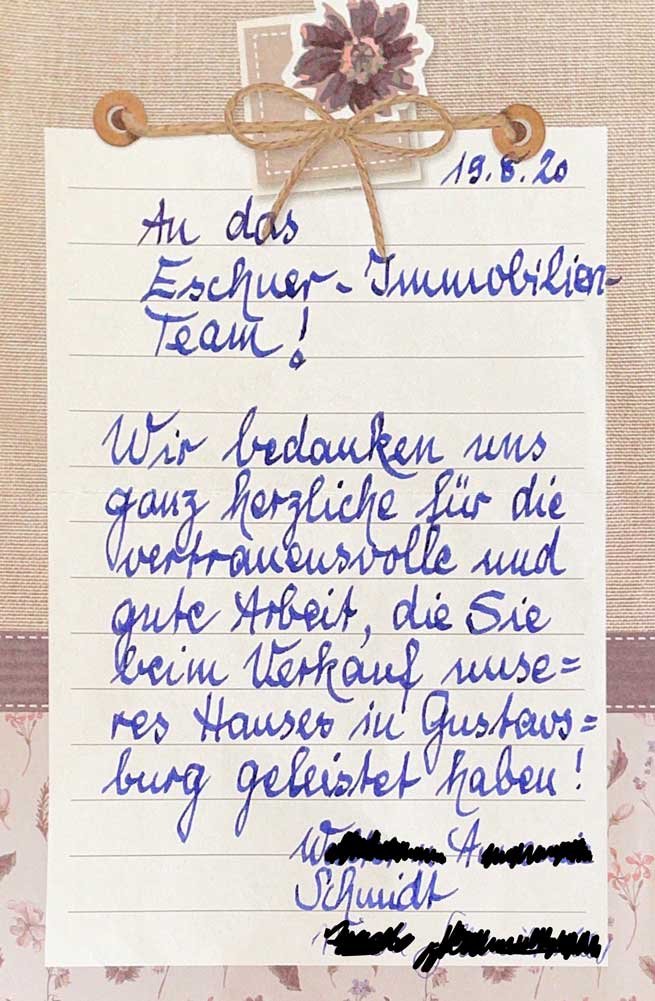 19.8.20
An das
Eschner-Immobilien-
Team!
Wir bedanken uns
ganz herzliche für die
vertrauensvolle und
gute Arbeit, die Sie
beim Verkauf unse=
res Hauses in Gustavs=
burg geleistet haben!
Schmidt